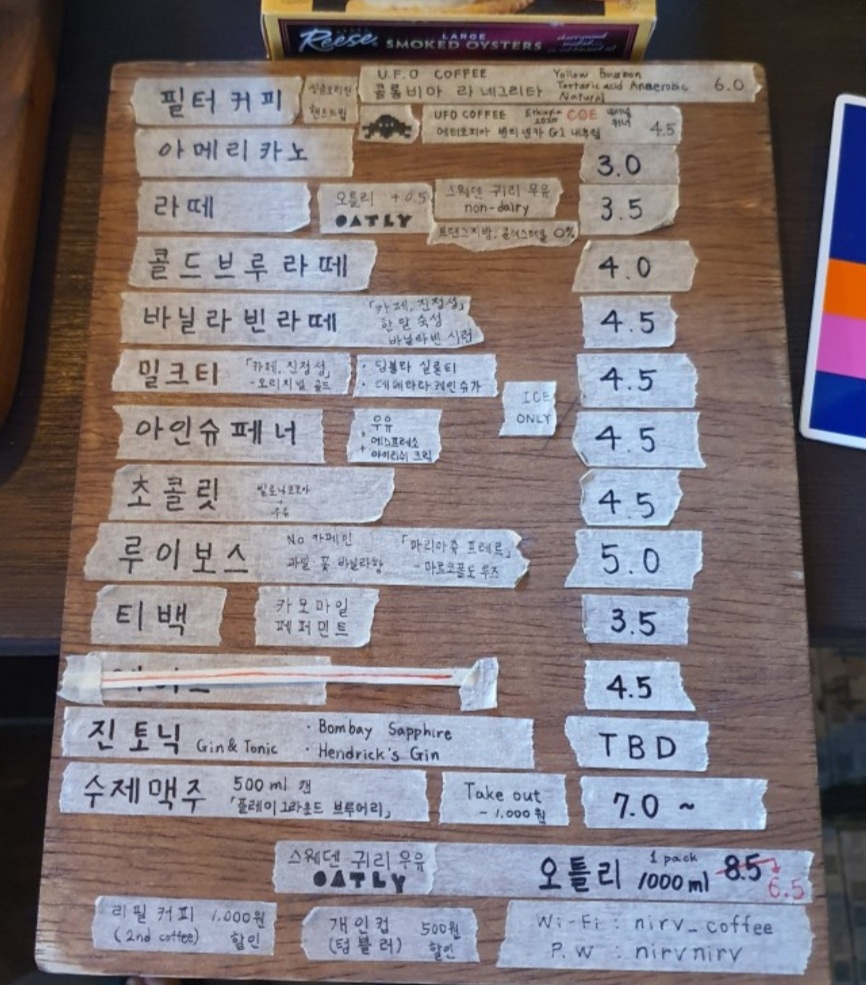 Reese
LARGE
SMOKED OYSTERS
필터커피
싱글오리진
핸드드립
U.F.O COFFEE
콜롬비아 라 네그리타
Yellow Bourbon
Tartaric acid Anaerobic
Natural
6.0
UFO COFFEE
Ethiopia
2020
COE
에티오피아 벤티넨카 G1 내추럴
4.5
아메리카노
3.0
라떼
오틀리 +0.5
OATLY
스웨덴 귀리 우유
non-dairy
트랜스지방, 콜레스테롤 0%
3.5
콜드브루라떼
4.0
바닐라빈라떼
「카페, 진정성」
한달 숙성
바닐라빈 시럽
4.5
밀크티
「카페, 진정성」
- 오리지널 골드
· 딤불라 실론티
· 데메라라 케인슈가
4.5
ICE
ONLY
아인슈페너
우유
+ 에스프레소
+ 아이리쉬 크림
4.5
초콜릿
+
우유
4.5
루이보스
No 카페인
과일 꽃 바닐라향
「마리아쥬 프레르」
- 마르코폴로 루즈
5.0
티백
카모마일
페퍼민트
3.5
4.5
진토닉 Gin & Tonic
· Bombay Sapphire
· Hendrick's Gin
TBD
수제맥주
500 ml 캔
「플레이그라운드 브루어리」
Take out
- 1,000원
7.0 ~
스웨덴 귀리 우유
OATLY
오틀리
1 pack
1000 ml
8.5
6.5
리필커피 1,000원
(2nd coffee) 할인
개인컵 500원
(텀블러) 할인
Wi-Fi : nirv_coffee
P.W : nirvnirv